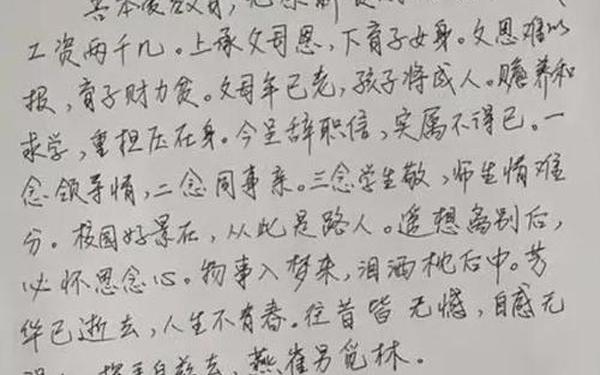 工资两千几。上承父母恩，下育子女身。父恩难以
报，育子财力贫。父母年已老，孩子将成人。赡养和
求学，重担压在身。今呈辞职信，实属不得已。一
念领导情，二念同事亲。三念学生敬，师生情难
分。校园好景在，从此是路人。遥想离别后，
必怀思念心。物事入梦来，泪洒枕后中。芳
华已逝去，人生不有春。往昔皆无憾，自感无
挥手自兹去，燕雀另觅林。